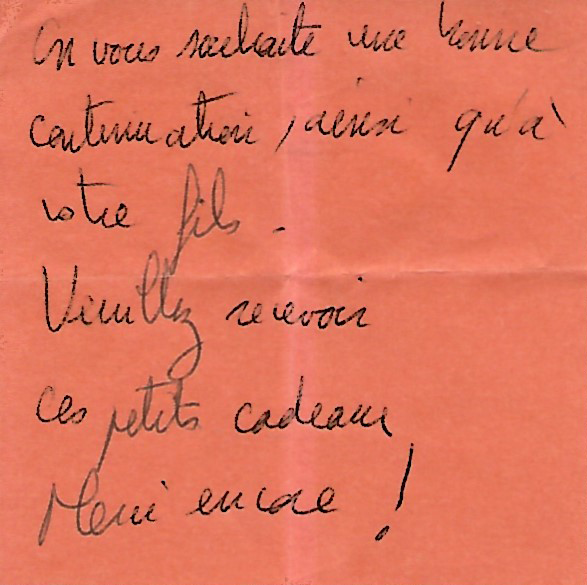 On vous souhaite une bonne
continuation, ainsi qu'à
votre fils.
Veuillez recevoir
ces petits cadeaux
Merci encore !